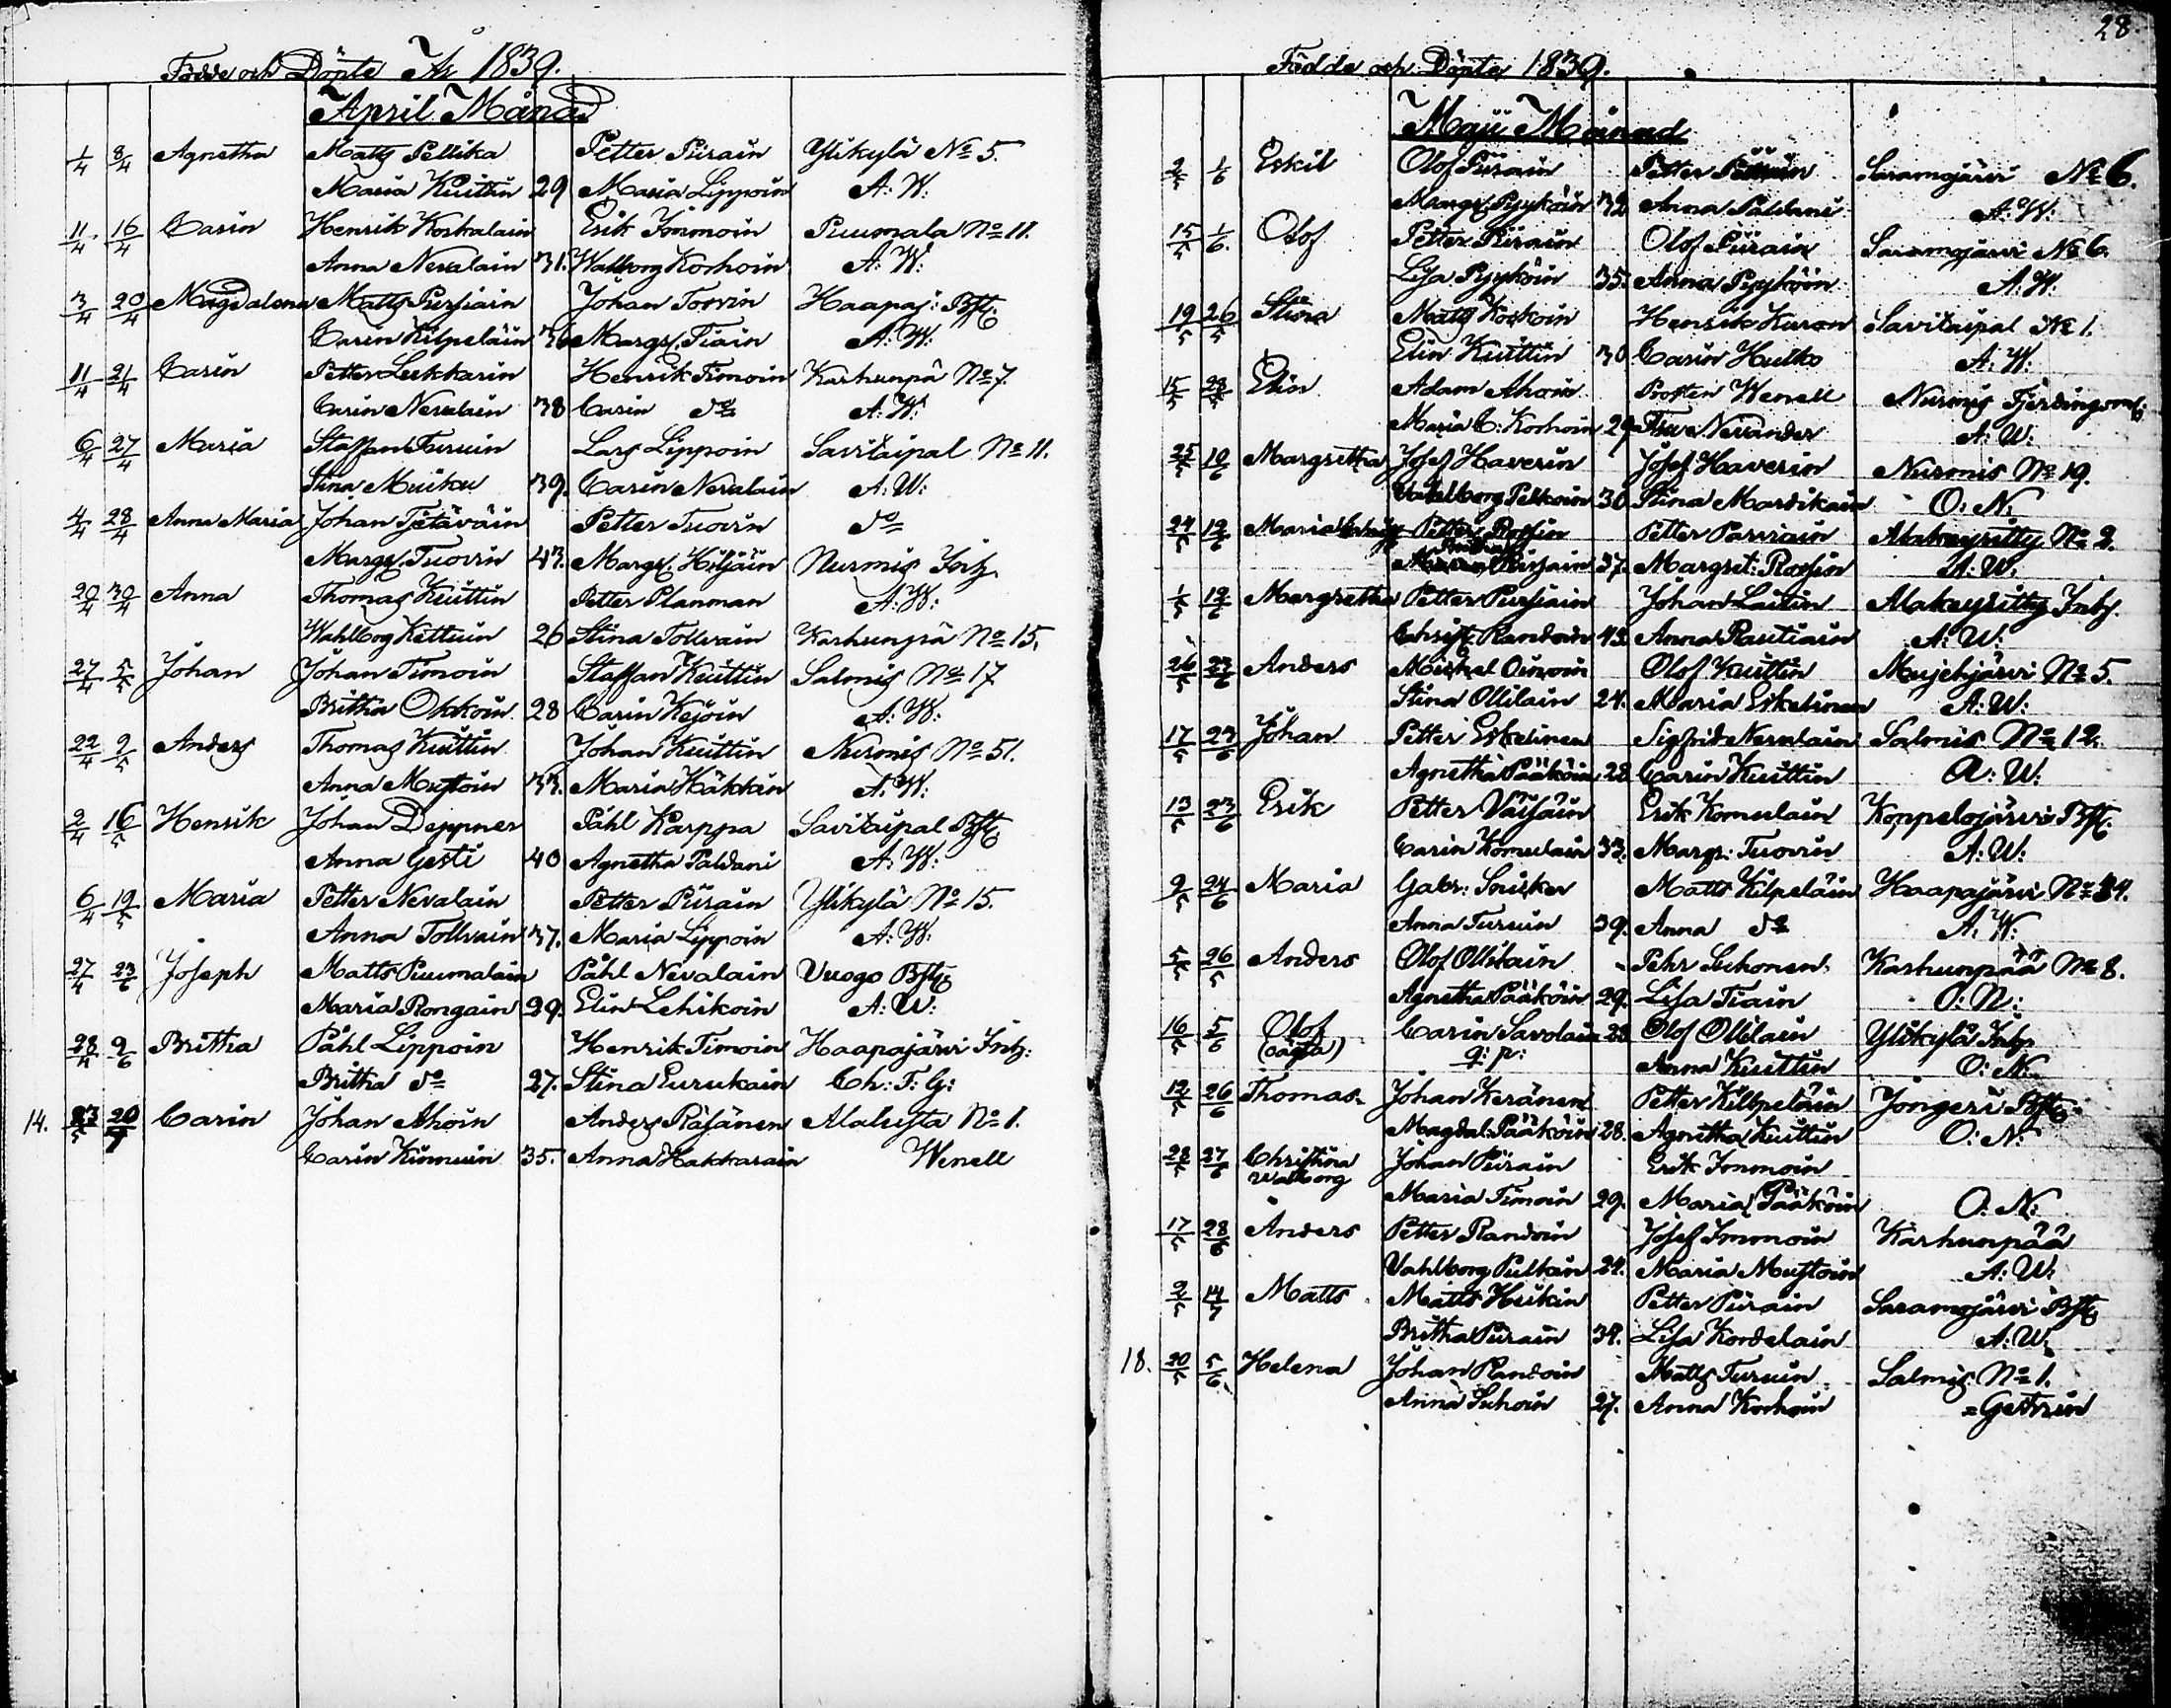 Födde och Döpte År 1839.
April Månad
1/4 8/4 Agnetha Matts Pellika Petter Piirain Ylikylä No 5.
Maria Kuittin 29 Maria Lippoin A: W:
11/4 16/4 Carin Henrik Koskalain Erik Immoin Puumala No 11.
Anna Nevalain 31. Walborg Korhoin A: W:
3/4 20/4 Magdalena Matts Pursiain Johan Torvin Haapaj: Bst.
Carin Kilpeläin 36 Margr. Tiain A: W:
11/4 21/4 Carin Petter Leskkarin Henrik Timoin Karhunpä No 7.
Carin Nevalain 38 Carin do A: W:
6/4 27/4 Maria Staffan Turuin Lars Lippoin Savitaipal No 11.
Stina Muiku 39. Carin Nevalain A: W:
4/4 28/4 Anna Maria Johan Tjetäväin Petter Tuovin do
Margr. Tuovin 43. Margr. Hiljäin Nurmis Inh.
20/4 30/4 Anna Thomas Kuittin Petter Planman A: W:
Wahlbog Kettuin 26 Stina Tollvain Karhunpä No 15.
27/4 5/5 Johan Johan Timoin Staffan Kuittin Salmis No 17
Britha Okkoin 28 Carin Kejoin A: W:
22/4 9/5 Anders Thomas Kuittin Johan Kuittin Nurmis No 51.
Anna Mustoin 33. Maria Häkkin A: W:
2/4 16/5 Henrik Johan Deppner Påhl Karppa Savitaipal Bst
Anna Gesti 40 Agnetha Paldani A: W:
6/4 19/5 Maria Petter Nevalain Petter Piirain Ylikylä No 15.
Anna Tollvain 37. Maria Lippoin A: W:
27/4 23/6 Joseph Matts Puumalain Påhl Nevalain Vuogo Bst
Maria Rongain 29. Elin Lehikoin A: W:
28/4 9/6 Britha Påhl Lippoin Henrik Timoin Haapajärvi Inh:
Britha do 27. Stina Eurukain Ch: T: G:
14. 23/5 20/7 Carin Johan Ahoin Anders Räsänen Alalusta No 1.
Carin Kinnuin 35. Anna Hakkarain Wenell
28.
Födde och Döpte 1839.
Maji Månad
2/5 1/6 Eskil Olof Piirain Petter Saramojärvi No 6.
Margr. Pyyköin 32 Anna Paldani A: W:
15/5 1/6. Olof Petter Piirain Olof Piirain Saramojärvi No 6.
Lisa Pyyköin 35. Anna Pyyköin A: W:
19/5 26/5 Stina Matts Koskoin Henrik Kuron Savitaipal No 1.
Elin Kuittin 30 Carin Hulko A: W:
15/5 28/5 Elin Adam Ahoin Prosten Wenell Nurmis Fjerdingsm:
Maria C: Korhoin 29 Fru Nevander A: W:
25/5 10/6 Margretha Josef Haverin Josef Haverin Nurmis No 19.
Vahlborg Pelkoin 30 Stina Mardikain O: N:
24/5 12/6 Maria Petter Rossin Petter Parviain Alakeyritty No 2.
37. Margret: Rossin A: W.
1/5 12/6 Margretha Petter Pursiain Johan Laitin Alakeyritty Inh.
Christ. Randoin 43. Anna Rautiain A: W:
26/5 23/6 Anders Mickel Oinoin Olof Kuittin Mujehjärvi No 5.
Stina Ollilain 24. Maria Eskelinen A: W:
17/5 23/6 Johan Petter Eskelinen Sigfrid Nevalain Salmis No 12.
Agnetha Pääköin 28 Carin Kuittin A: W:
13/5 23/6 Erik Petter Väisäin Erik Komulain Koppelojärvi Bst.
Carin Komulain 33. Margr: Tuovin A: W:
9/5 24/6 Maria Gabr: Snicker Matts Kilpeläin Haapajärvi No
Anna Turuin 39. Anna do A: W:
5/5 26/5 Anders Olof Ollilain Pehr Suhonen Karhunpää No 8.
Agnetha Pääköin 29. Lisa Tiain O: N:
16/5 5/6 Olof Carin Savolain 28 Olof Ollilain Ylikylä Inh
(oägta) q: p: Anna Kuittin O: N:
12/5 26/6 Thomas Johan Keränen Petter Kilpeläin Jongeri Bst
Magdal: Pääköin 28. Agnetha Kuittin O: N:
28/5 27/6 Christina Johan Piirain Erik Immoin
Walborg Maria Timoin 29. Maria Pääköin O: N:
17/5 28/6 Anders Petter Randoin Josef Immoin Karhunpää
Vahlborg Pulkin 24. Maria Mustoin A: W:
9/5 14/7 Matts Matts Heikin Petter Piirain Saramojärvi Bst
Britha Piirain 34. Lisa Kordelain A: W:
18. 20/5 5/6 Helena Johan Randoin Matts Turuin Salmis No 1.
Anna Suhoin 27. Anna Korhoin =Gestrin